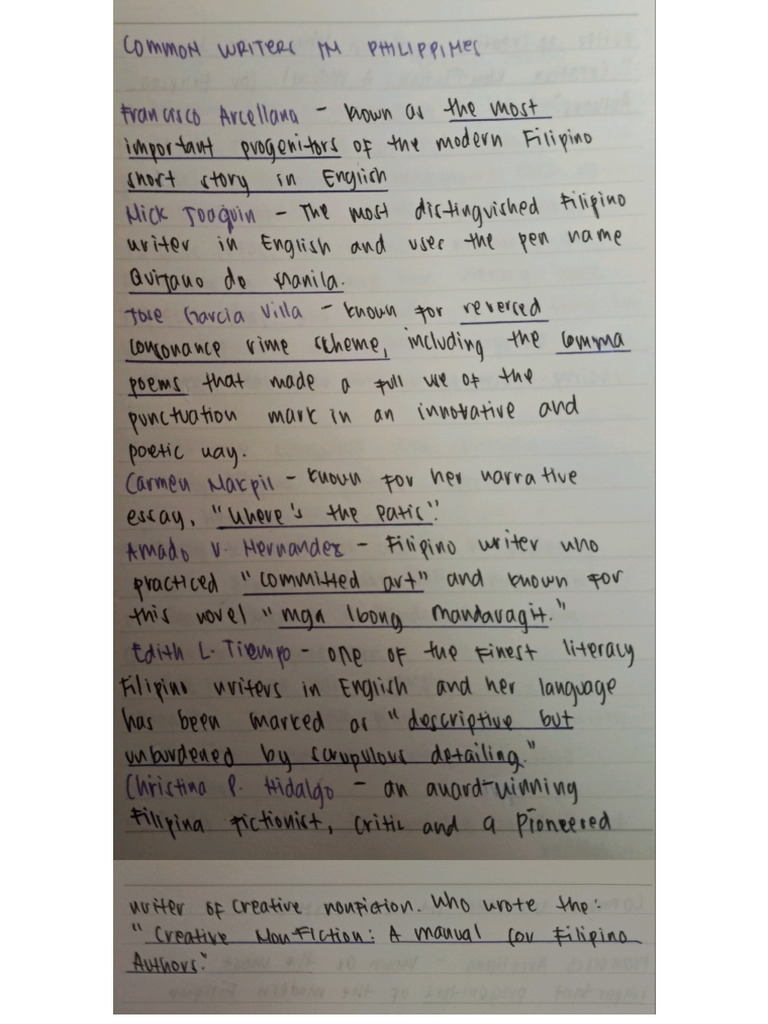 COMMON WRITERS IN PHILIPPINES
Francisco Arcellana - known as the most
important progenitors of the modern Filipino
short story in English
Nick Joaquin - The most distinguished Filipino
writer in English and uses the pen name
Quijano de Manila.
Jose Garcia Villa - known for reversed
consonance rime scheme, including the comma
poems that made a full use of the
punctuation mark in an innovative and
poetic way.
Carmen Nakpil - known for her narrative
essay, "Where's the Patis".
Amado V. Hernandez - Filipino writer who
practiced "committed art" and known for
this novel "mga Ibong mandaragit."
Edith L. Tiempo - one of the finest literacy
Filipino writers in English and her language
has been marked as "descriptive but
unburdened by scrupulous detailing."
Christina P. Hidalgo - an award-winning
Filipina fictionist, critic and a pioneered
writer of creative nonfiction. Who wrote the:
"Creative NonFiction: A manual for Filipino
Authors."